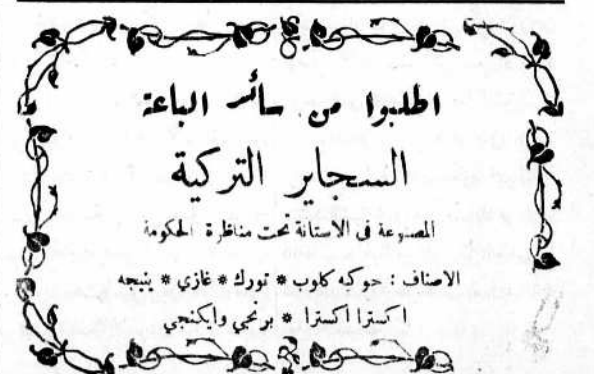 اطلبوا من سائر الباعة
السجاير التركية
المصنوعة فى الاستانة تحت مناظرة الحكومة
الاصناف : جوكه كلوب * تورك * غازي * ينيجه
اكسترا اكسترا * برنجي وايكنجي